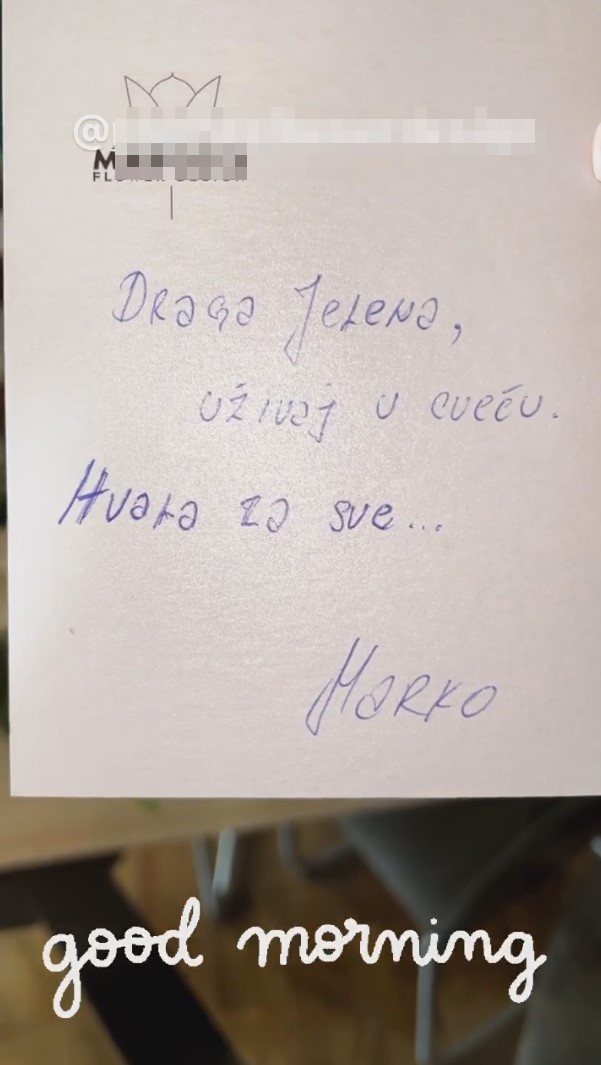 @
FLOWER DESIGN
Draga Jelena,
uživaj u cveću.
Hvala za sve...
Marko
good morning